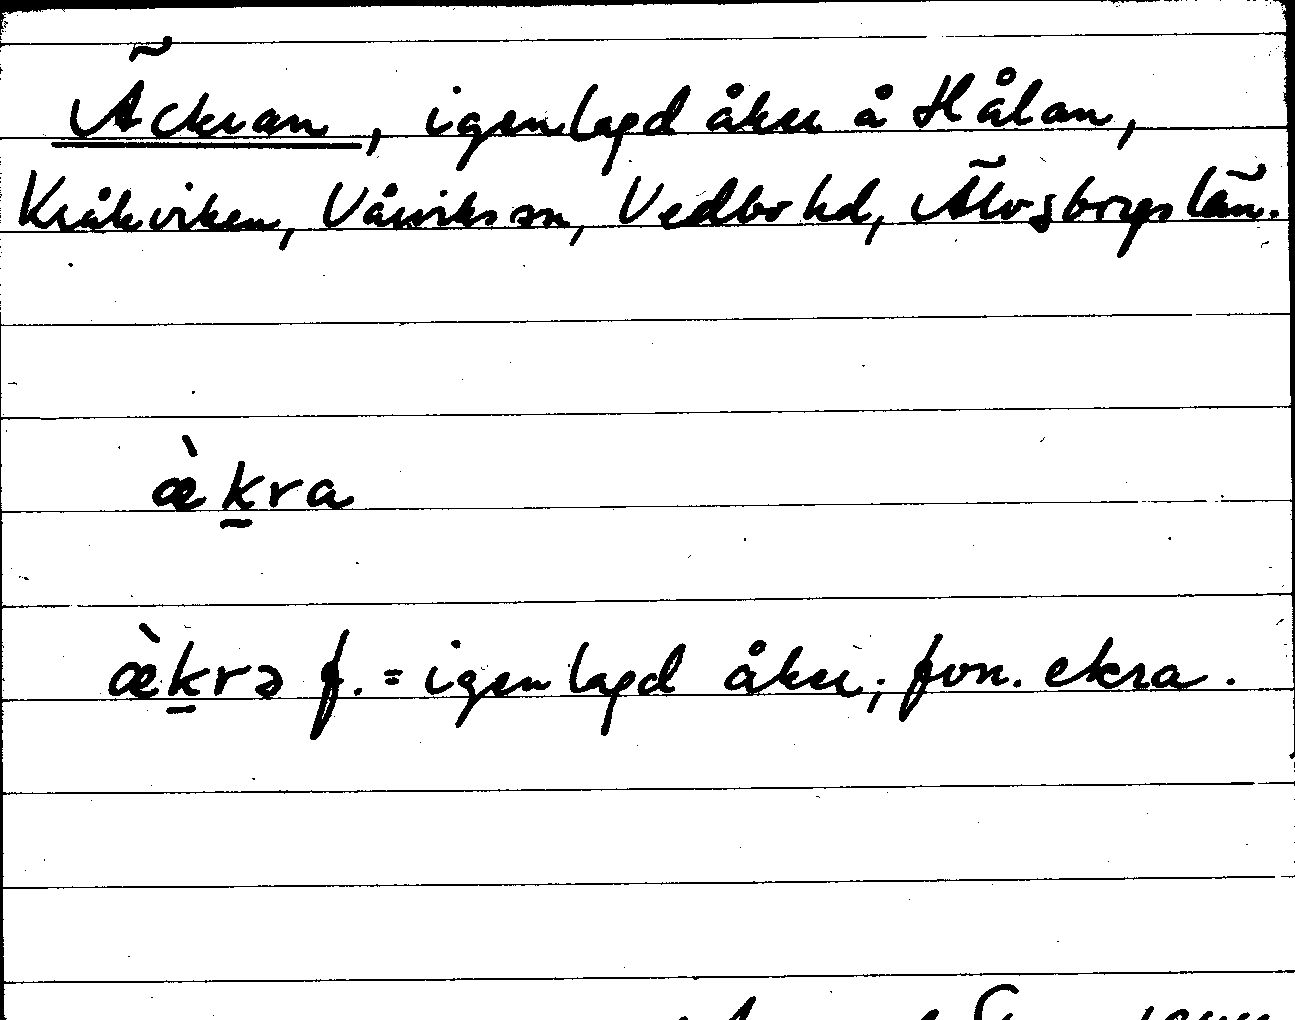 Äckran, igenlagd åker å Hålan,
Kråkviken, Vårviks sn, Vedbo hd, Älvsborgs län.
æ̀k̠ra
æ̀k̠rə f. = igenlagd åker; fvn. ekra.